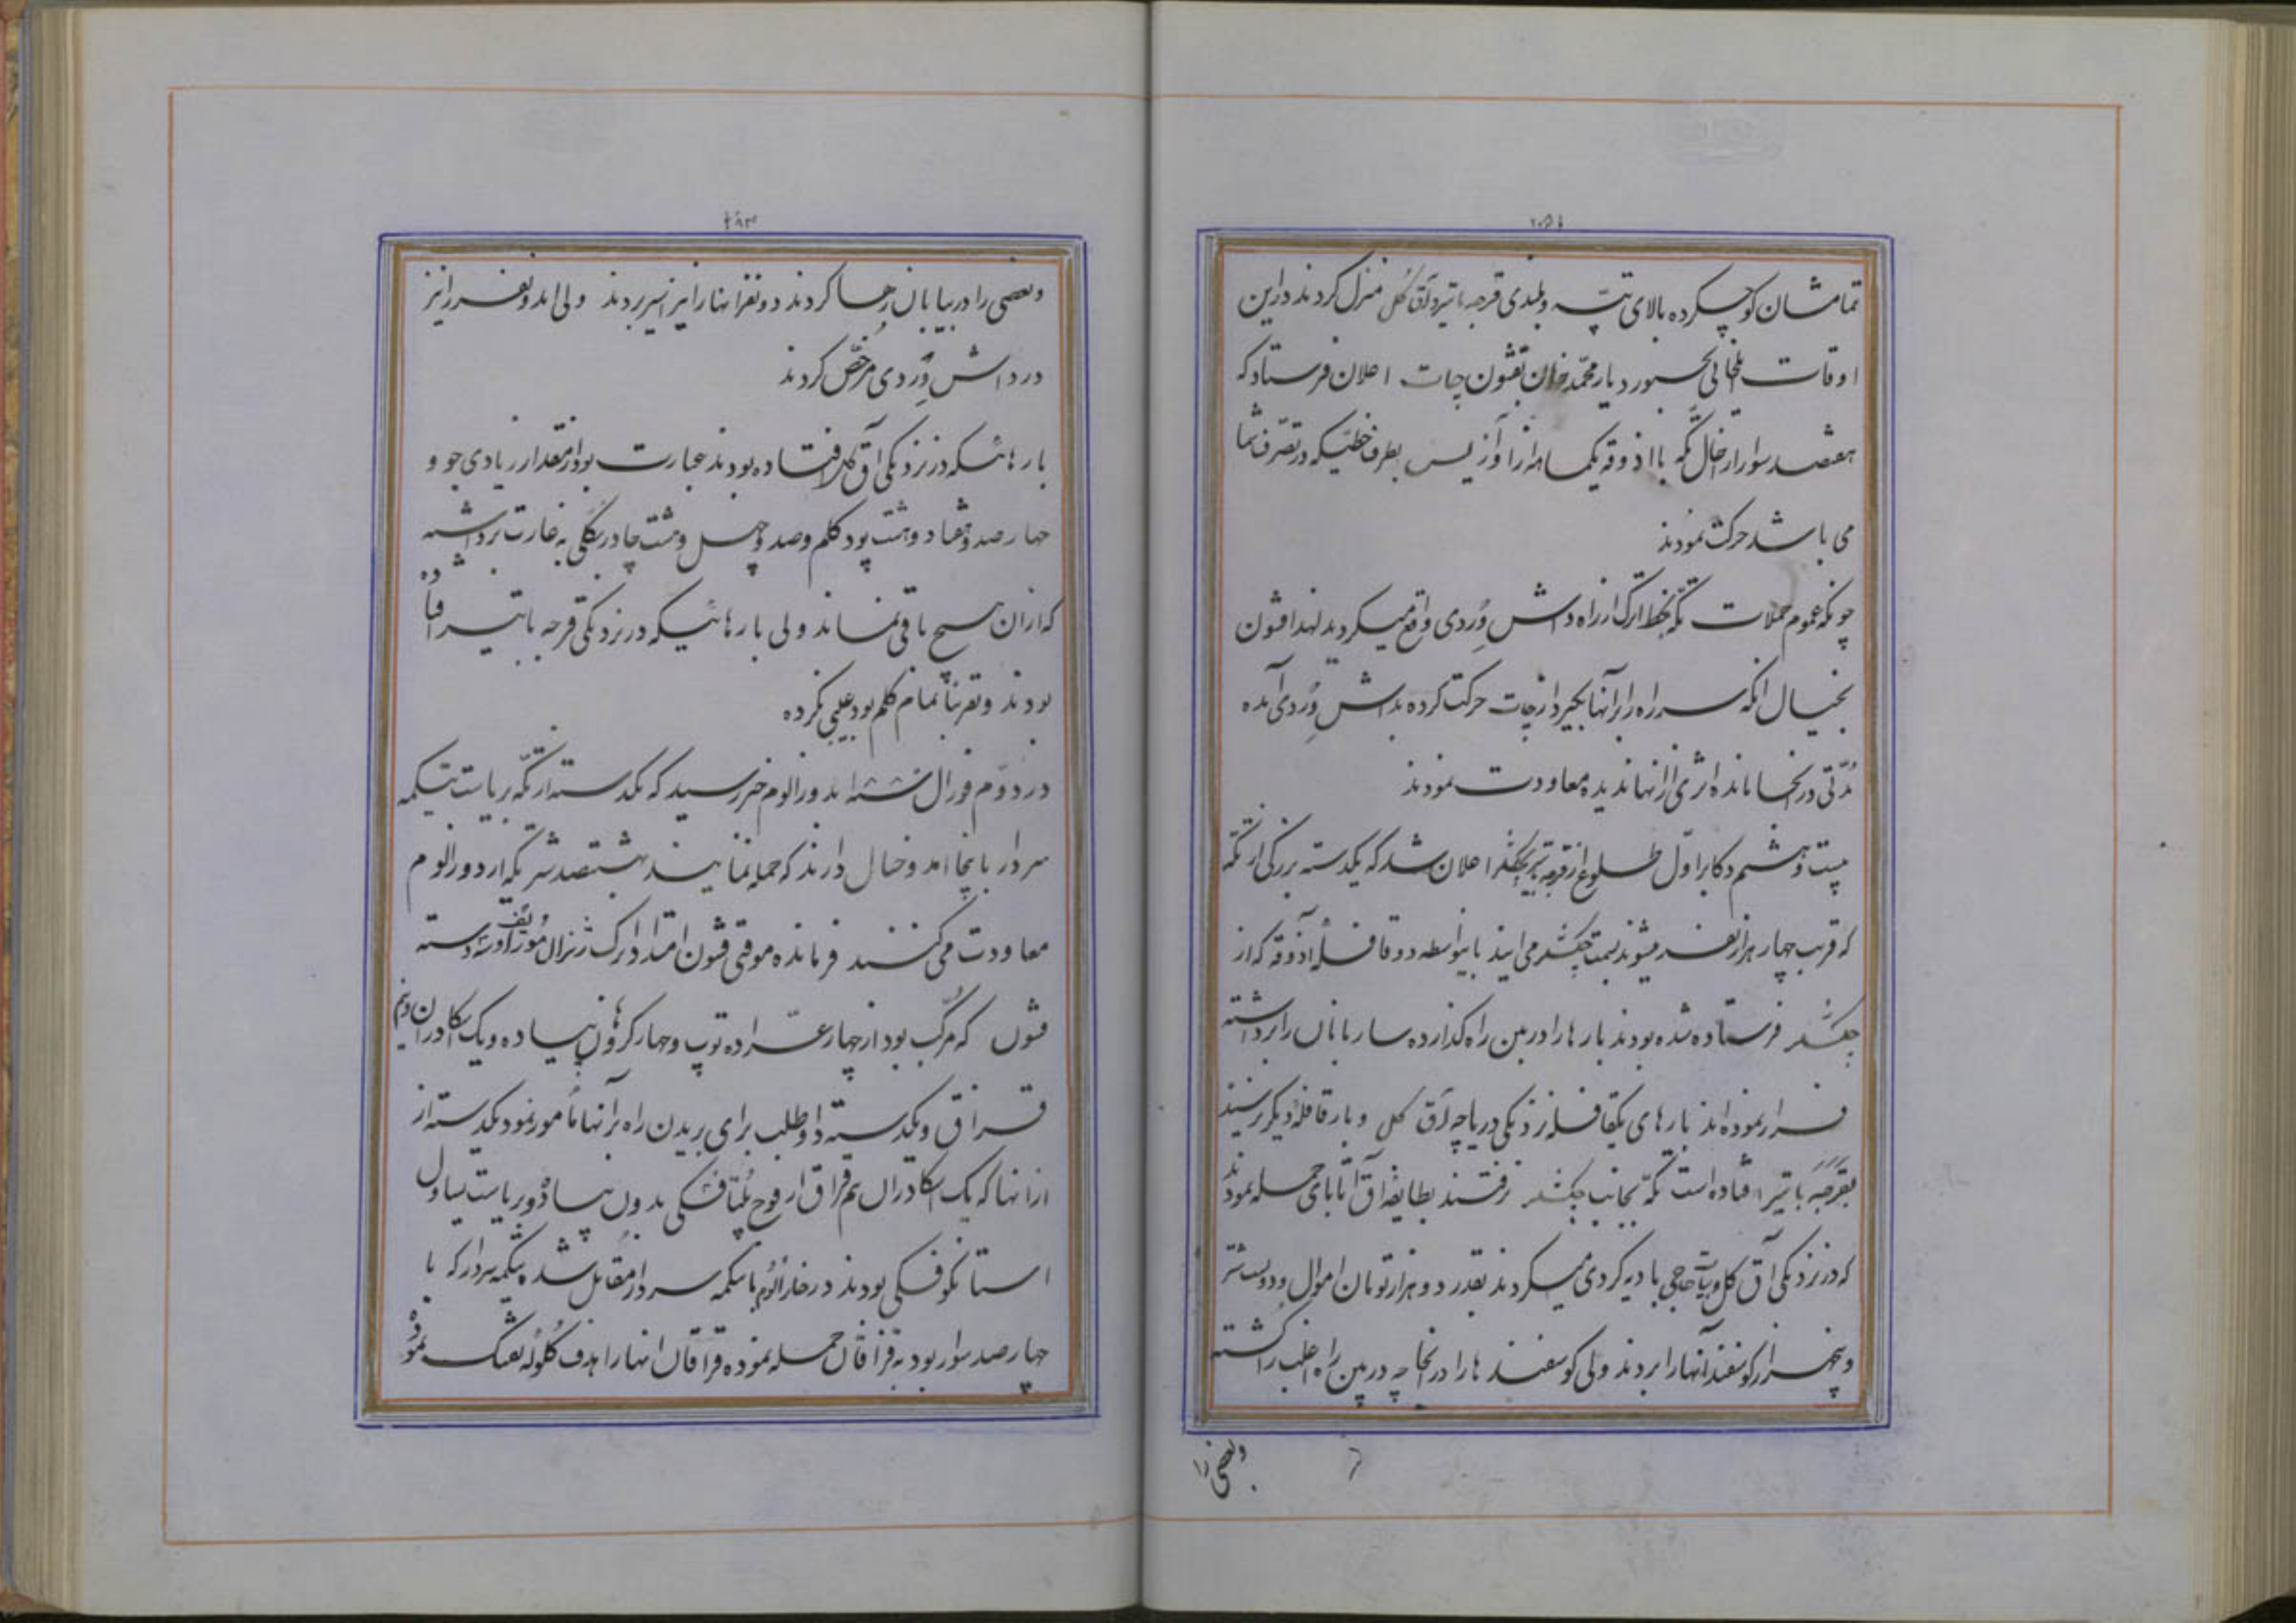 تمامشان کوچکرده بالای تپه و بلندی قرجه باتیر و آق گل منزل کردند در این
اوقات ایلخانی بجنورد یار محمد خان بقشون چات اعلان فرستاد که
هفتصد سوار از اخال تکه با اذوقه یکماهه از اوزلیس بطرف خطیکه در تصرف شما
می باشد حرکت نمودند
چونکه عموم حملات تکه بخط اترک از راه داش وردی واقع میکردید لهذا قشون
بخیال انکه سر راه را بر آنها بگیرد از چات حرکت کرده بداش وردی آمده
مدتی در انجا مانده اثری از انها ندیده معاودت نمودند
بیست و هشتم دکابر اول طلوع از قرجه اعلان شد که یکدسته بزرگی از تکه
که قریب چهار هزار نفر میشوند بسمت چکشلر می ایند باینواسطه دو قافله آذوقه که از
چکشلر فرستاده شده بودند بارها را در بین راه گذارده ساربانان را برداشته
فرار نموده اند بارهای یکقافله نزدیکی دریاچه آق گل و بار قافله دیگر
بقرجه باتیر افتاده است تکه بجانب چکشلر نرفتند بطایفه آق اتابای حمله نمودند
که در نزدیکی آق گل و بیات حاجی بادیه گردی میکردند بقدر دو هزار تومان اموال و دویست شتر
و پنجهزار گوسفند آنها را بردند ولی گوسفند ها را در انجا چه در بین راه اغلب را کشته
وبعضی را
۲۸۳
وبعضی را در بیابان رها کردند دو نفر انها را نیز اسیر بردند ولی اندو نفر را نیز
در داش وردی مرخص کردند
بارهائیکه در نزدیکی آق گل افتاده بودند عبارت بود از مقدار زیادی جو و
چهارصد و هشتاد و هشت پود کلم و صد و چهل و هشت چادر بکلی به غارت برداشته
که از ان هیچ باقی نماند ولی بارهائیکه در نزدیکی قرجه باتیر افتاده
بودند و تقریبا تمام کلم بود عیبی نکرده
در دوم فورال سنه به دوزالوم خبر رسید که یکدسته از تکه بریاست تیکمه
سردار باینجا امده و خیال دارند که حمله نمایند بهشتصد شتریکه از دوزالوم
معاودت می کنند فرمانده موقتی قشون امتداد اترک ژنرال دسته
قشون که مرکب بود از چهار عراده توپ و چهار کروهان پیاده و یک اسکادران و نیم
قزاق و یکدسته داوطلب برای بریدن راه بر آنها مامور نمود یکدسته از
از انها که یک اسکادران نیم قزاق از فوج پلتافسکی بدون پیاده و بریاست یساول
استانکوفسکی بودند در خارالوم با تیکمه سردار مقابل شده تیکمه سردار که با
چهارصد سوار بود به قزاقان حمله نموده قزاقان انها را هدف گلوله تفنگ نموده